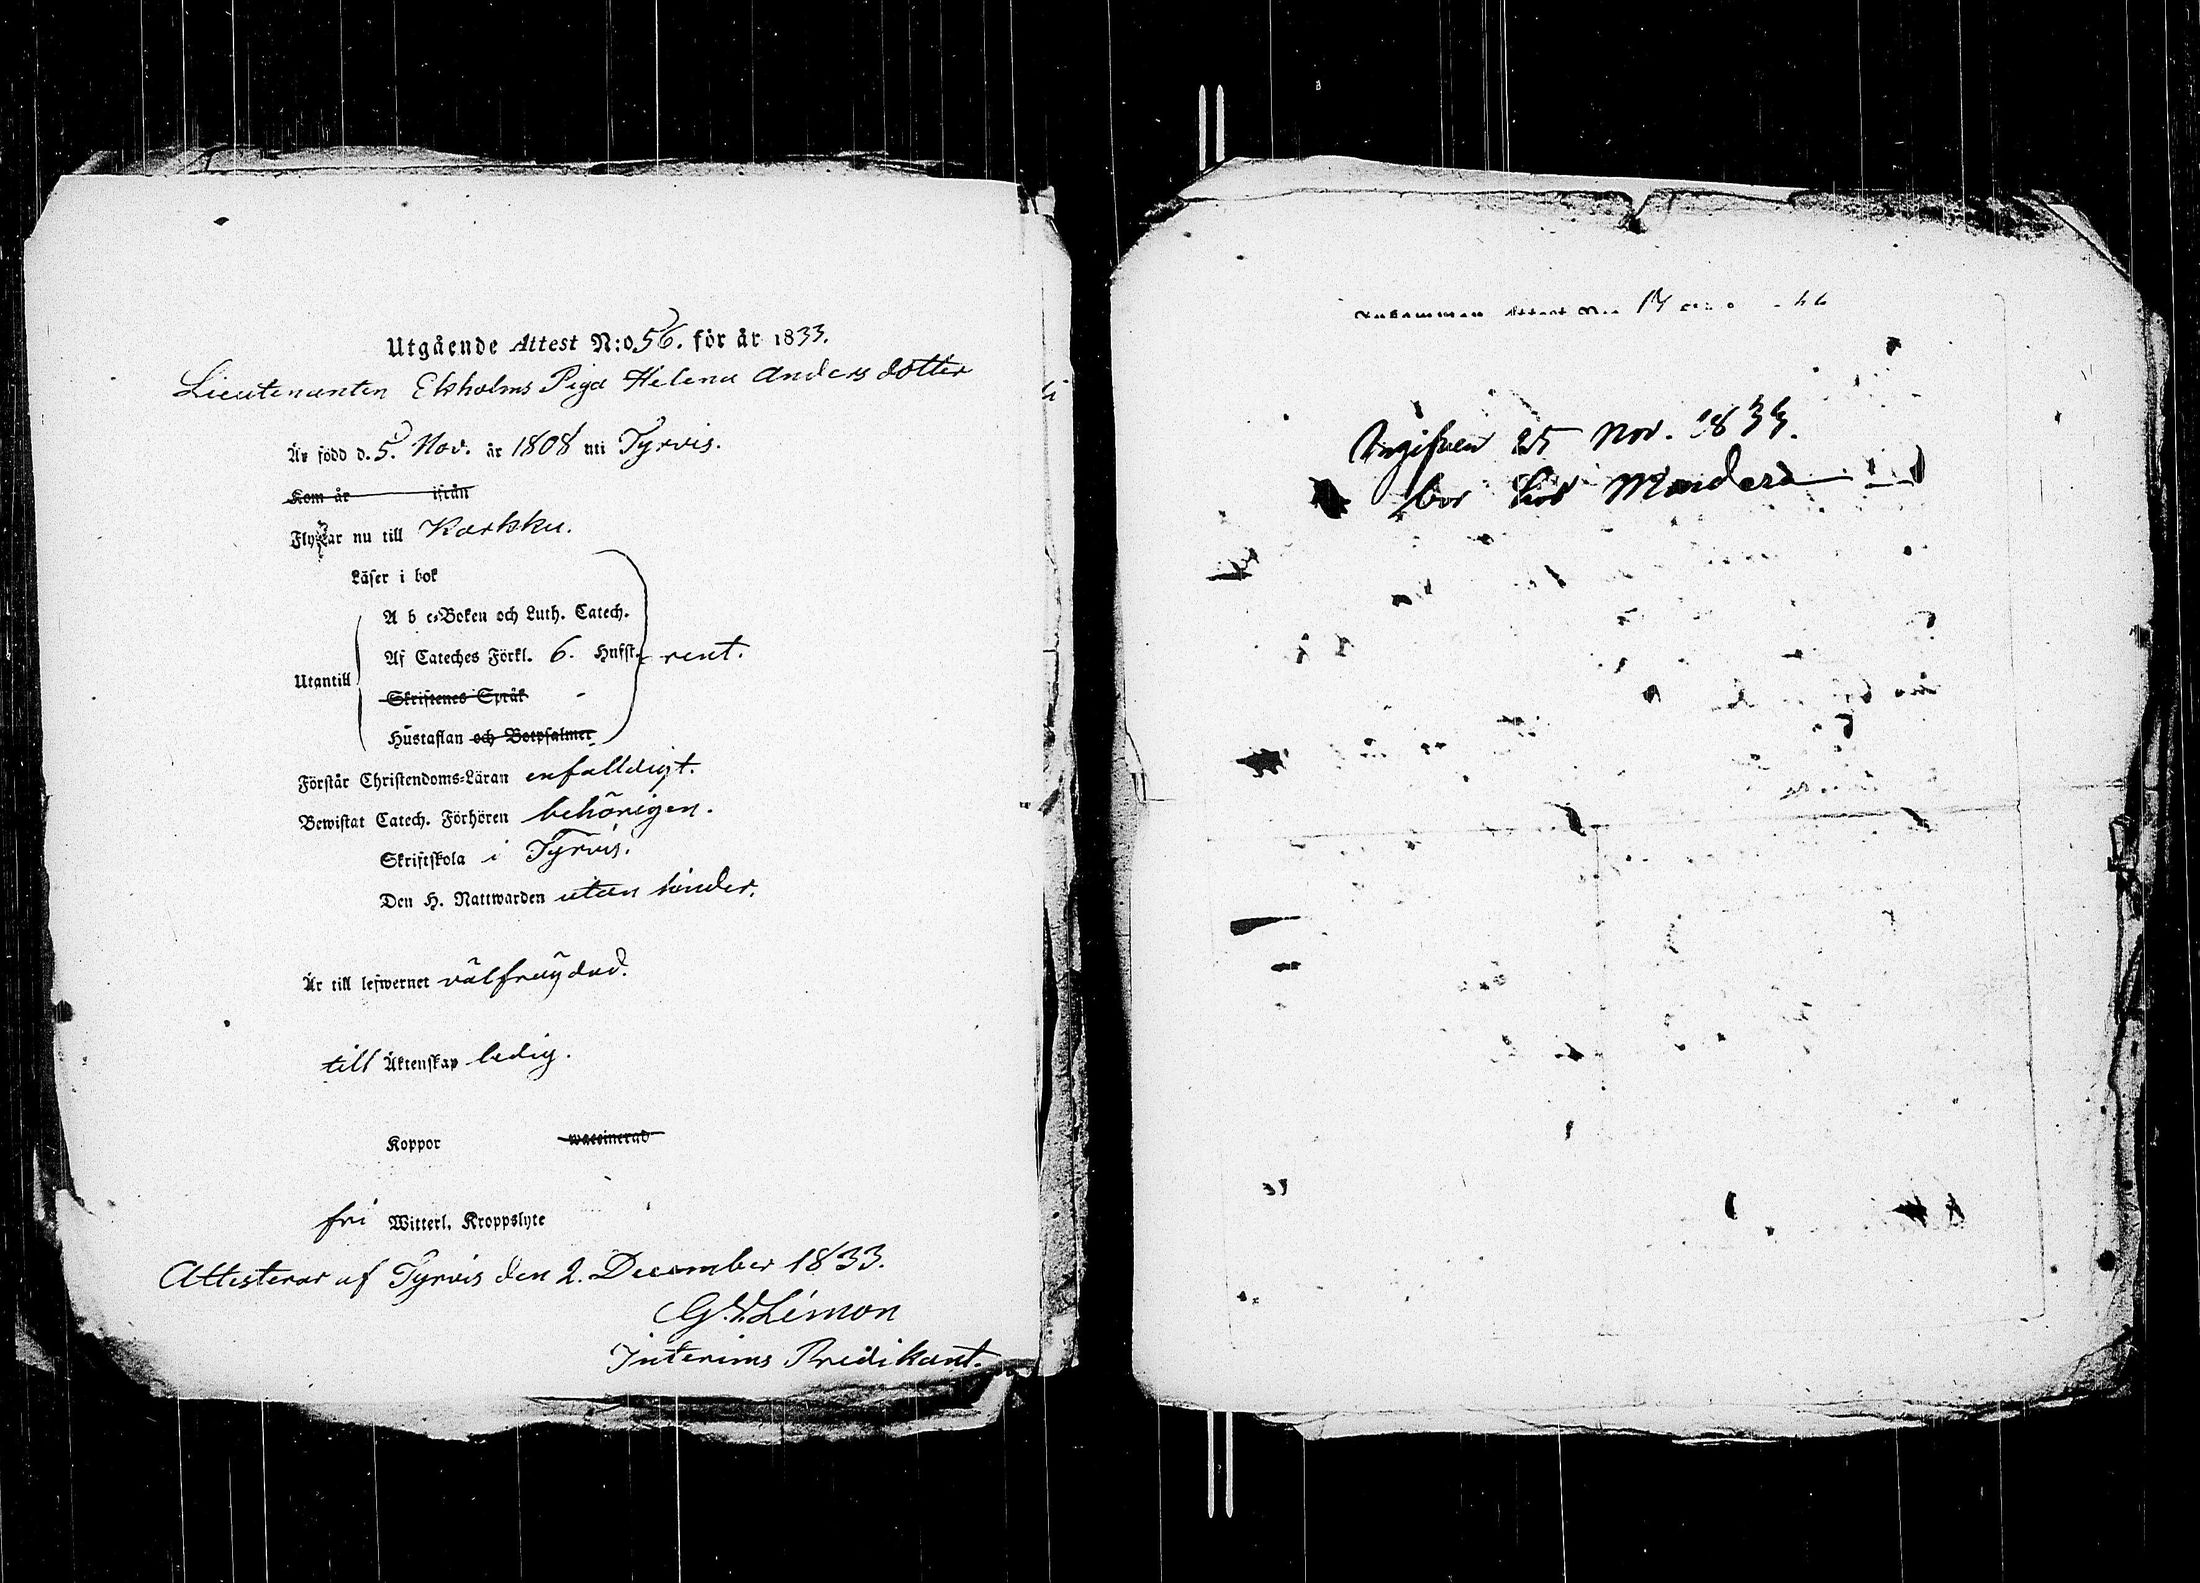 Utgående Attest N:o 56. för år 1833.
Lieutenanten Ekholms Piga Helena Anders dotter
Är född d. 5. Nov. år 1808 uti Tyrvis.
Kom år ifrån
Flyttar nu till Karkku.
Läser i bok
A b c-Boken och Luth. Catech.
Af Cateches Förkl. 6. Hufst. rent.
Utantill
Skriftenes Språk
Hustaflan och Botpsalmer
Förstår Christendoms-Läran enfalldigt.
Bewistat Catech. Förhören behörigen.
Skriftskola i Tyrvis.
Den H. Nattwarden utan hinder.
Är till lefwernet välfräjdad.
till Äktenskap ledig.
Koppor waccinerad
fri Witterl. Kroppslyte
Attesterar af Tyrvis den 2. December 1833.
Limon
Interims Predikant.
Inkommen Attest N:o 14
25 Nov. 1833.
bor hos